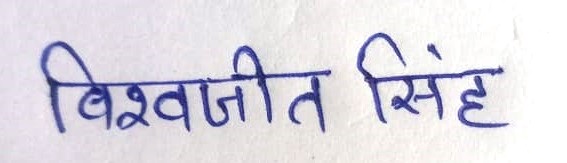 विश्वजीत सिंह